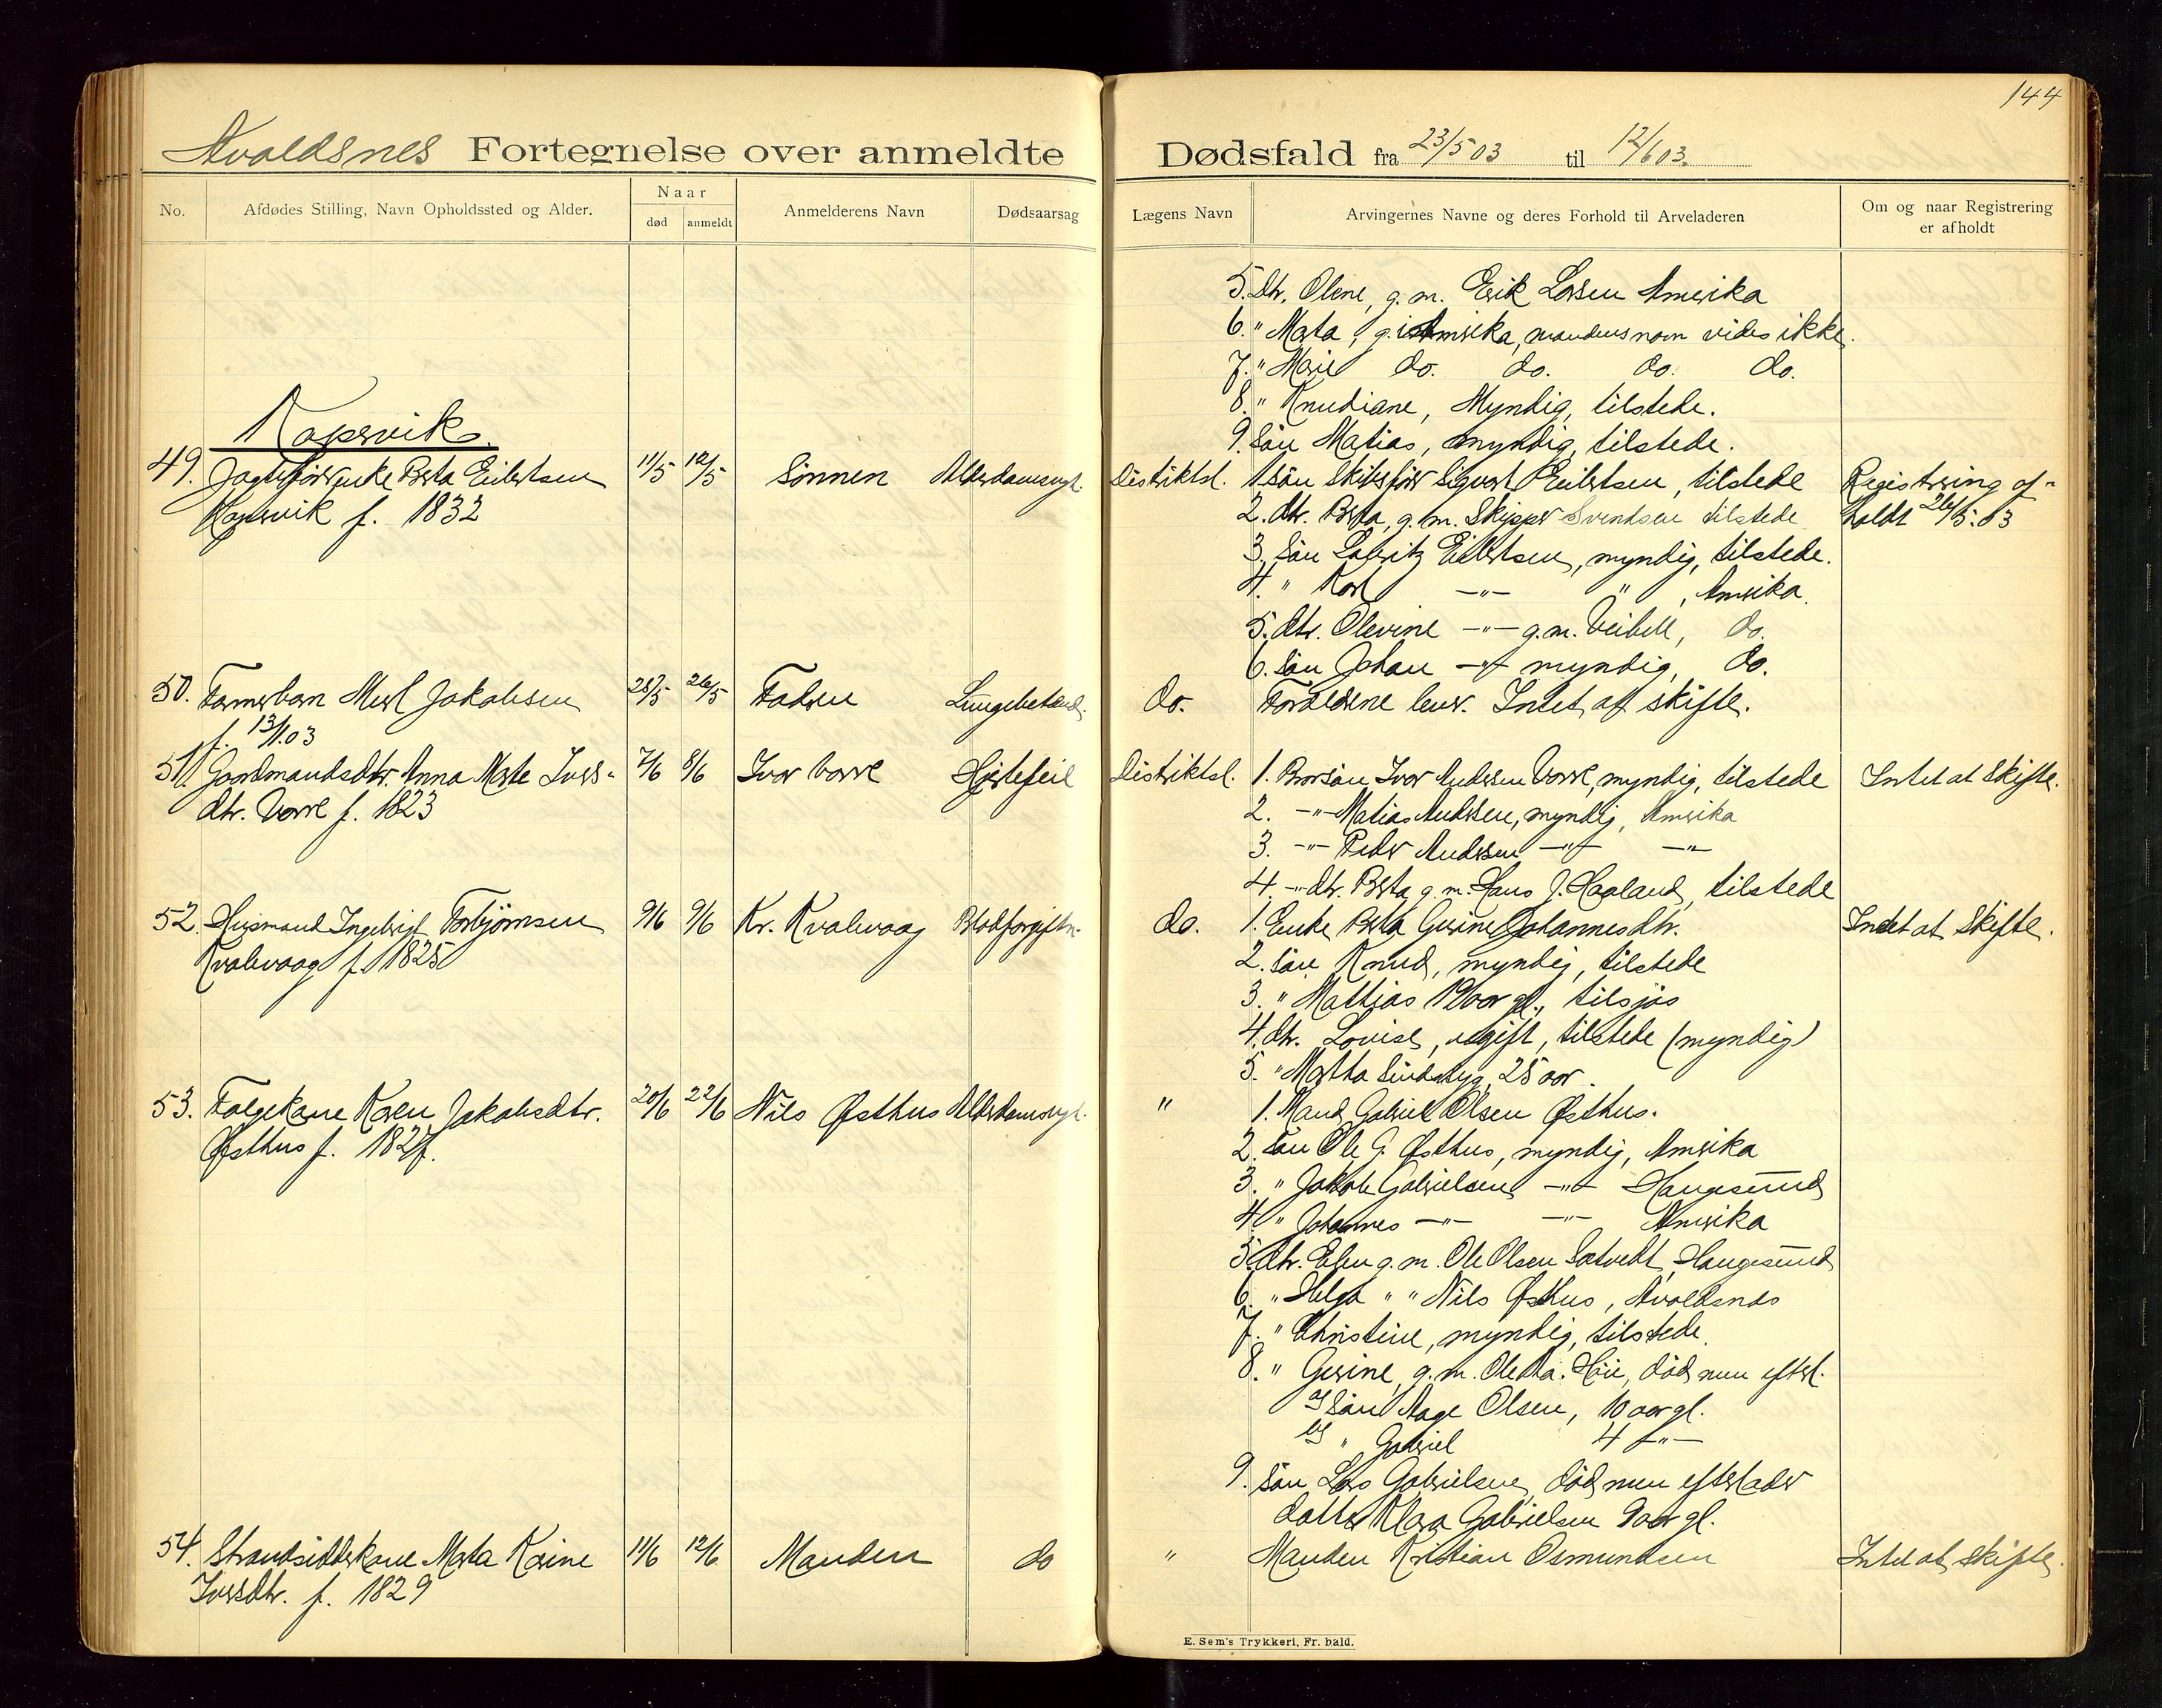 144
Avaldsnes Fortegnelse over anmeldte Dødsfald fra 23/5 03 til 12/6 03.
No.
Afdødes Stilling, Navn Opholdssted og Alder.
Naar
død
anmeldt
Anmelderens Navn
Dødsaarsag
Lægens Navn
Arvingernes Navne og deres Forhold til Arveladeren
Om og naar Registrering
er afholdt
5. Dtr. Olene, g. m. Erik Larsen Amerika
6. " Marta, g. i Amerika, mandens navn vides ikke.
7. " Marie do. do. do. do.
8. " Knudiane, Myndig, tilstede.
9. Søn Matias, myndig, tilstede.
Kopervik.
49. Jagteførerenke Berta Eilertsen 11/5 12/5 Sønnen Alderdomssvgt. Distriktsl. 1. Søn Skibsfører Sigvart Eilertsen, tilstede Registrering af-
Kopervik f. 1832 2. dtr. Berta, g. m. Skipper Svendsen tilstede holdt 26/5. 03
3. Søn Lauritz Eilertsen, myndig, tilstede.
4. " Karl -"- " , Amerika.
5. dtr. Olevine -"- g. m. , do.
6. Søn Johan -"- myndig, do.
50. Farverbarn Jakobsen 25/5 26/5 Faderen Lungebetænd. do. Forældrene lever. Intet at skifte.
f. 13/1.03
51. Gaardmandsdtr. Anna Marte Ivers- 7/6 8/6 Ivar Vorre Hjertefeil Distriktsl. 1. Brorsøn Ivar Andersen Vorre, myndig, tilstede Intet at skifte.
dtr. Vorre f. 1823 2. -"- Matias Andersen, myndig, Amerika
3. -"- Peder Andersen -"- -"-
4. -"- dtr. Berta g. m. Hans J. Haaland, tilstede
52. Husmand Ingebrigt Torbjørnsen 9/6 9/6 Kr. Kvalevaag Blodforgiftn. do. 1. Enke Berta Gurine Johannesdtr. Intet at skifte.
Kvalevaag f. 1825 2. Søn Knud, myndig, tilstede
3. " Mathias 19 aar gl., tilsjøs
4. dtr. Lovise, ugift, tilstede (myndig)
5. " Martha Sindssyg, 25 aar.
53. Følgekone Karen Jakobsdtr. 20/6 22/6 Nils Østhus Alderdomssvgt. " 1. Mand Gabriel Olsen Østhus.
Østhus f. 1827. 2. Søn Ole G. Østhus, myndig, Amerika
3. " Jakob Gabrielsen -"- Haugesund
4. " Johannes -"- -"- Amerika
5. dtr. Elen g. m. Ole Olsen Sætvedt, Haugesund
6. " Helga " " Nils Østhus, Avaldsnes
7. " Christine, myndig, tilstede.
8. " Gurine, g. m. Ole Høie, død men efterl.
a/ Søn Aage Olsen, 10 aar gl.
b/ " Gabriel 4 -"-
9. Søn Lars Gabrielsen, død men efterlader
datter Klara Gabrielsen 9 aar gl.
54. Strandsidderkone Marta Karine 11/6 12/6 Manden do " Manden Kristian Osmundsen Intet at skifte.
Iversdtr. f. 1829
E. Sem's Trykkeri, Fr. hald.